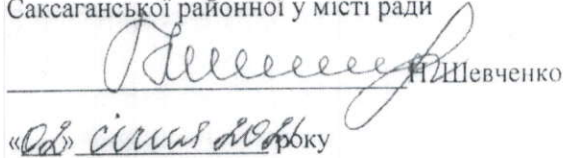 Саксаганської районної у місті ради
Н. Шевченко
«02» січня 2024 року